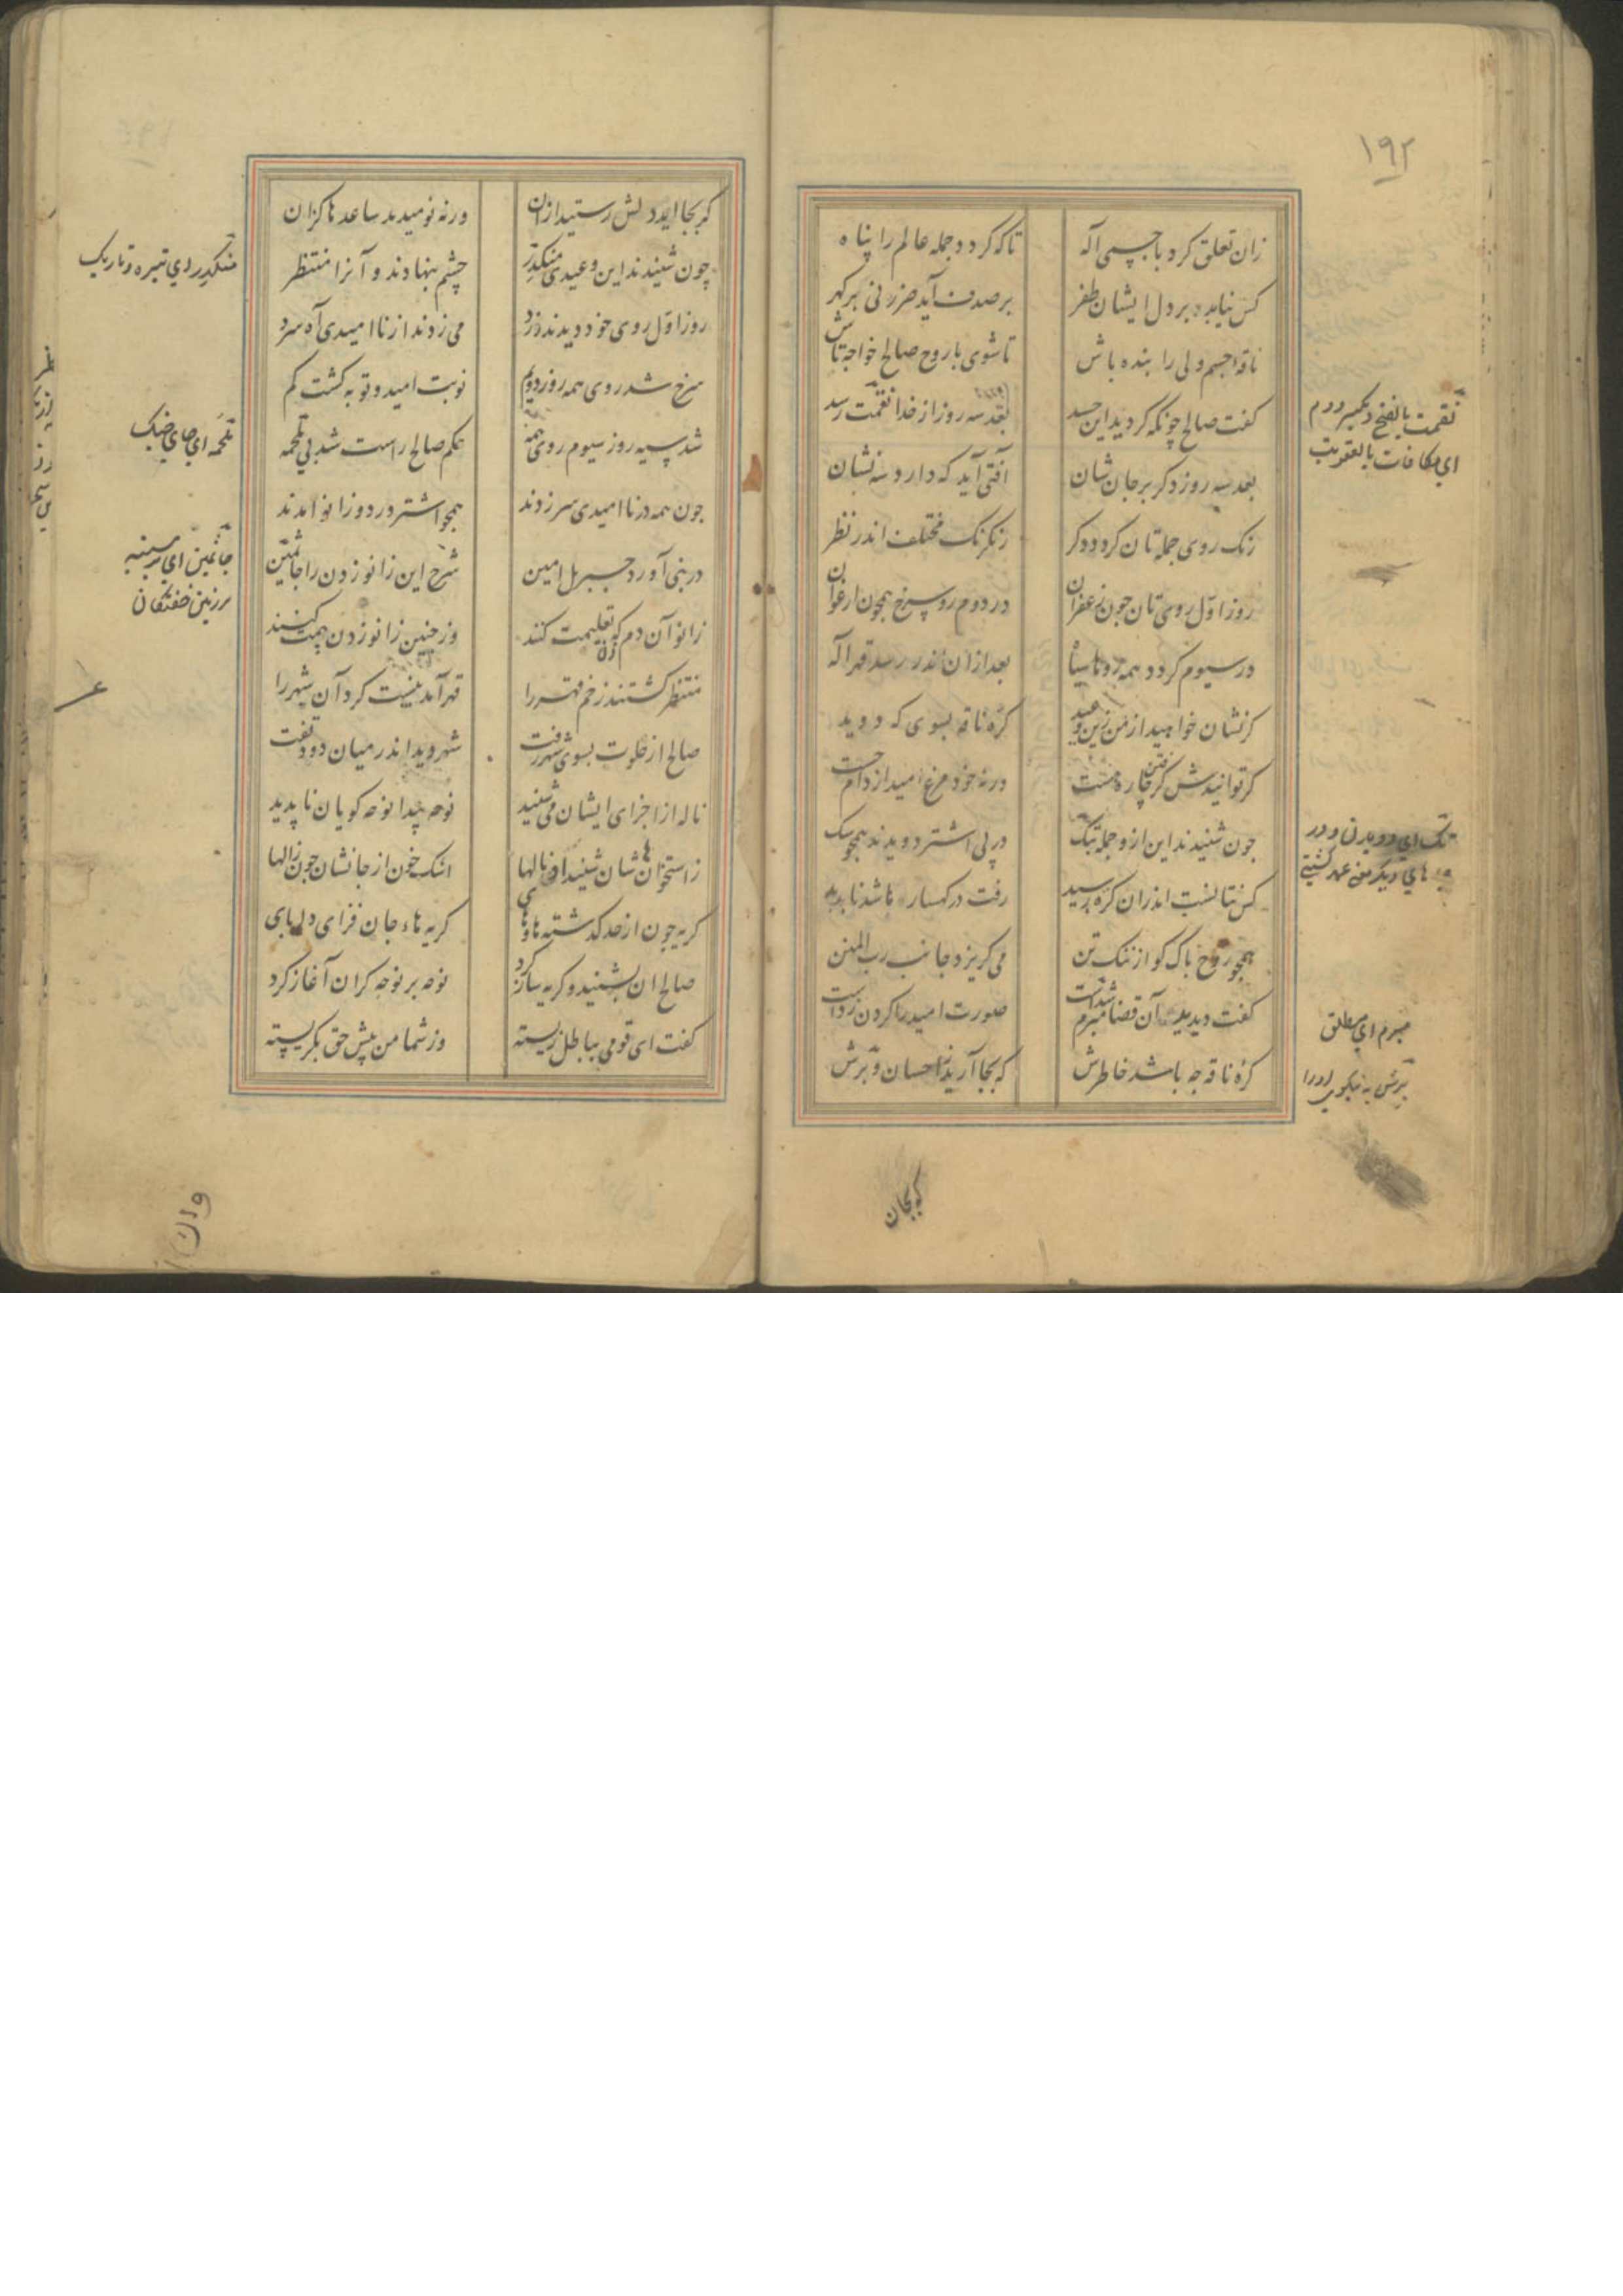 ۱۹۲
زان تعلق کرد با جسمی اله
تاکه کردد جمله عالم را پناه
کس نیابد بر دل ایشان ظفر
بر صدف آید ضرر نی بر کهر
ناقه جسم ولی را بنده باش
تا شوی با روح صالح خواجه تاش
کفت صالح چونکه کردید این حسد
بعد سه روز از خدا نقمت رسد
بعد سه روز دکر بر جان شان
آفتی آید که دارد سه نشان
رنک روی جمله تان کردد دکر
رنک رنک مختلف اندر نظر
روز اول روی تان چون زعفران
در دوم رو سرخ همچون ارغوان
در سیوم کردد همه روها سیاه
بعد ازان اندر رسد قهر اله
کر نشان خواهید از من زین وعید
کره ناقه بسوی که دوید
کر توانیدش کرفتن چاره هست
ورنه خود مرغ امید از دام جست
چون شنیدند این ازو جمله بتک
در پی اشتر دویدند همچو سک
کس نتانست اندران کره رسید
رفت در کهسارها شد ناپدید
همچو روح پاک کو از ننک تن
می کریزد جانب رب المنن
کفت دیدید آن قضا مبرم شدست
صورت امید را کردن زدست
کره ناقه چه باشد خاطرش
که بجا آرید ز احسان و برش
نقمت بالفتح و بکسر دوم
ای مکافات بالعقوبت
تک ای دویدن و در
مبرم ای مطلق
برش به نیکوی او را
کر بجا
کر بجا آید دلش رستید ازان
ورنه نومیدید ساعد ها کزان
چون شنیدند این وعید منکدر
چشم بنهادند و آنرا منتظر
روز اول روی خود دیدند زرد
می زدند از نا امیدی آه سرد
سرخ شد روی همه روز دوم
نوبت امید و توبه کشت کم
شد سیه روز سیوم روی همه
حکم صالح راست شد بی ملحمه
چون همه در نا امیدی سر زدند
همچو اشتر در دو زانو آمدند
در نبی آورد جبریل امین
شرح این زانو زدن را جاثمین
زانو آن دم زن که تعلیمت کنند
وز چنین زانو زدن بیمت کنند
منتظر کشتند زخم قهر را
قهر آمد نیست کرد آن شهر را
صالح از خلوت بسوی شهر رفت
شهر دید اندر میان دود و تفت
ناله از اجزای ایشان می شنید
نوحه پیدا نوحه کویان ناپدید
ز استخوان هاشان شنید او نالها
اشک خون از جانشان چون ژالها
کریه چون از حد کذشته های های
کریه هاء جان فزای دلربای
صالح ان بشنید و کریه ساز کرد
نوحه بر نوحه کران آغاز کرد
کفت ای قومی بباطل زیسته
وز شما من پیش حق بکریسته
منکدر ای تیره و تاریک
ملحمه ای جای جنک
جاثمین ای بر سینه
بر زمین خفتکان